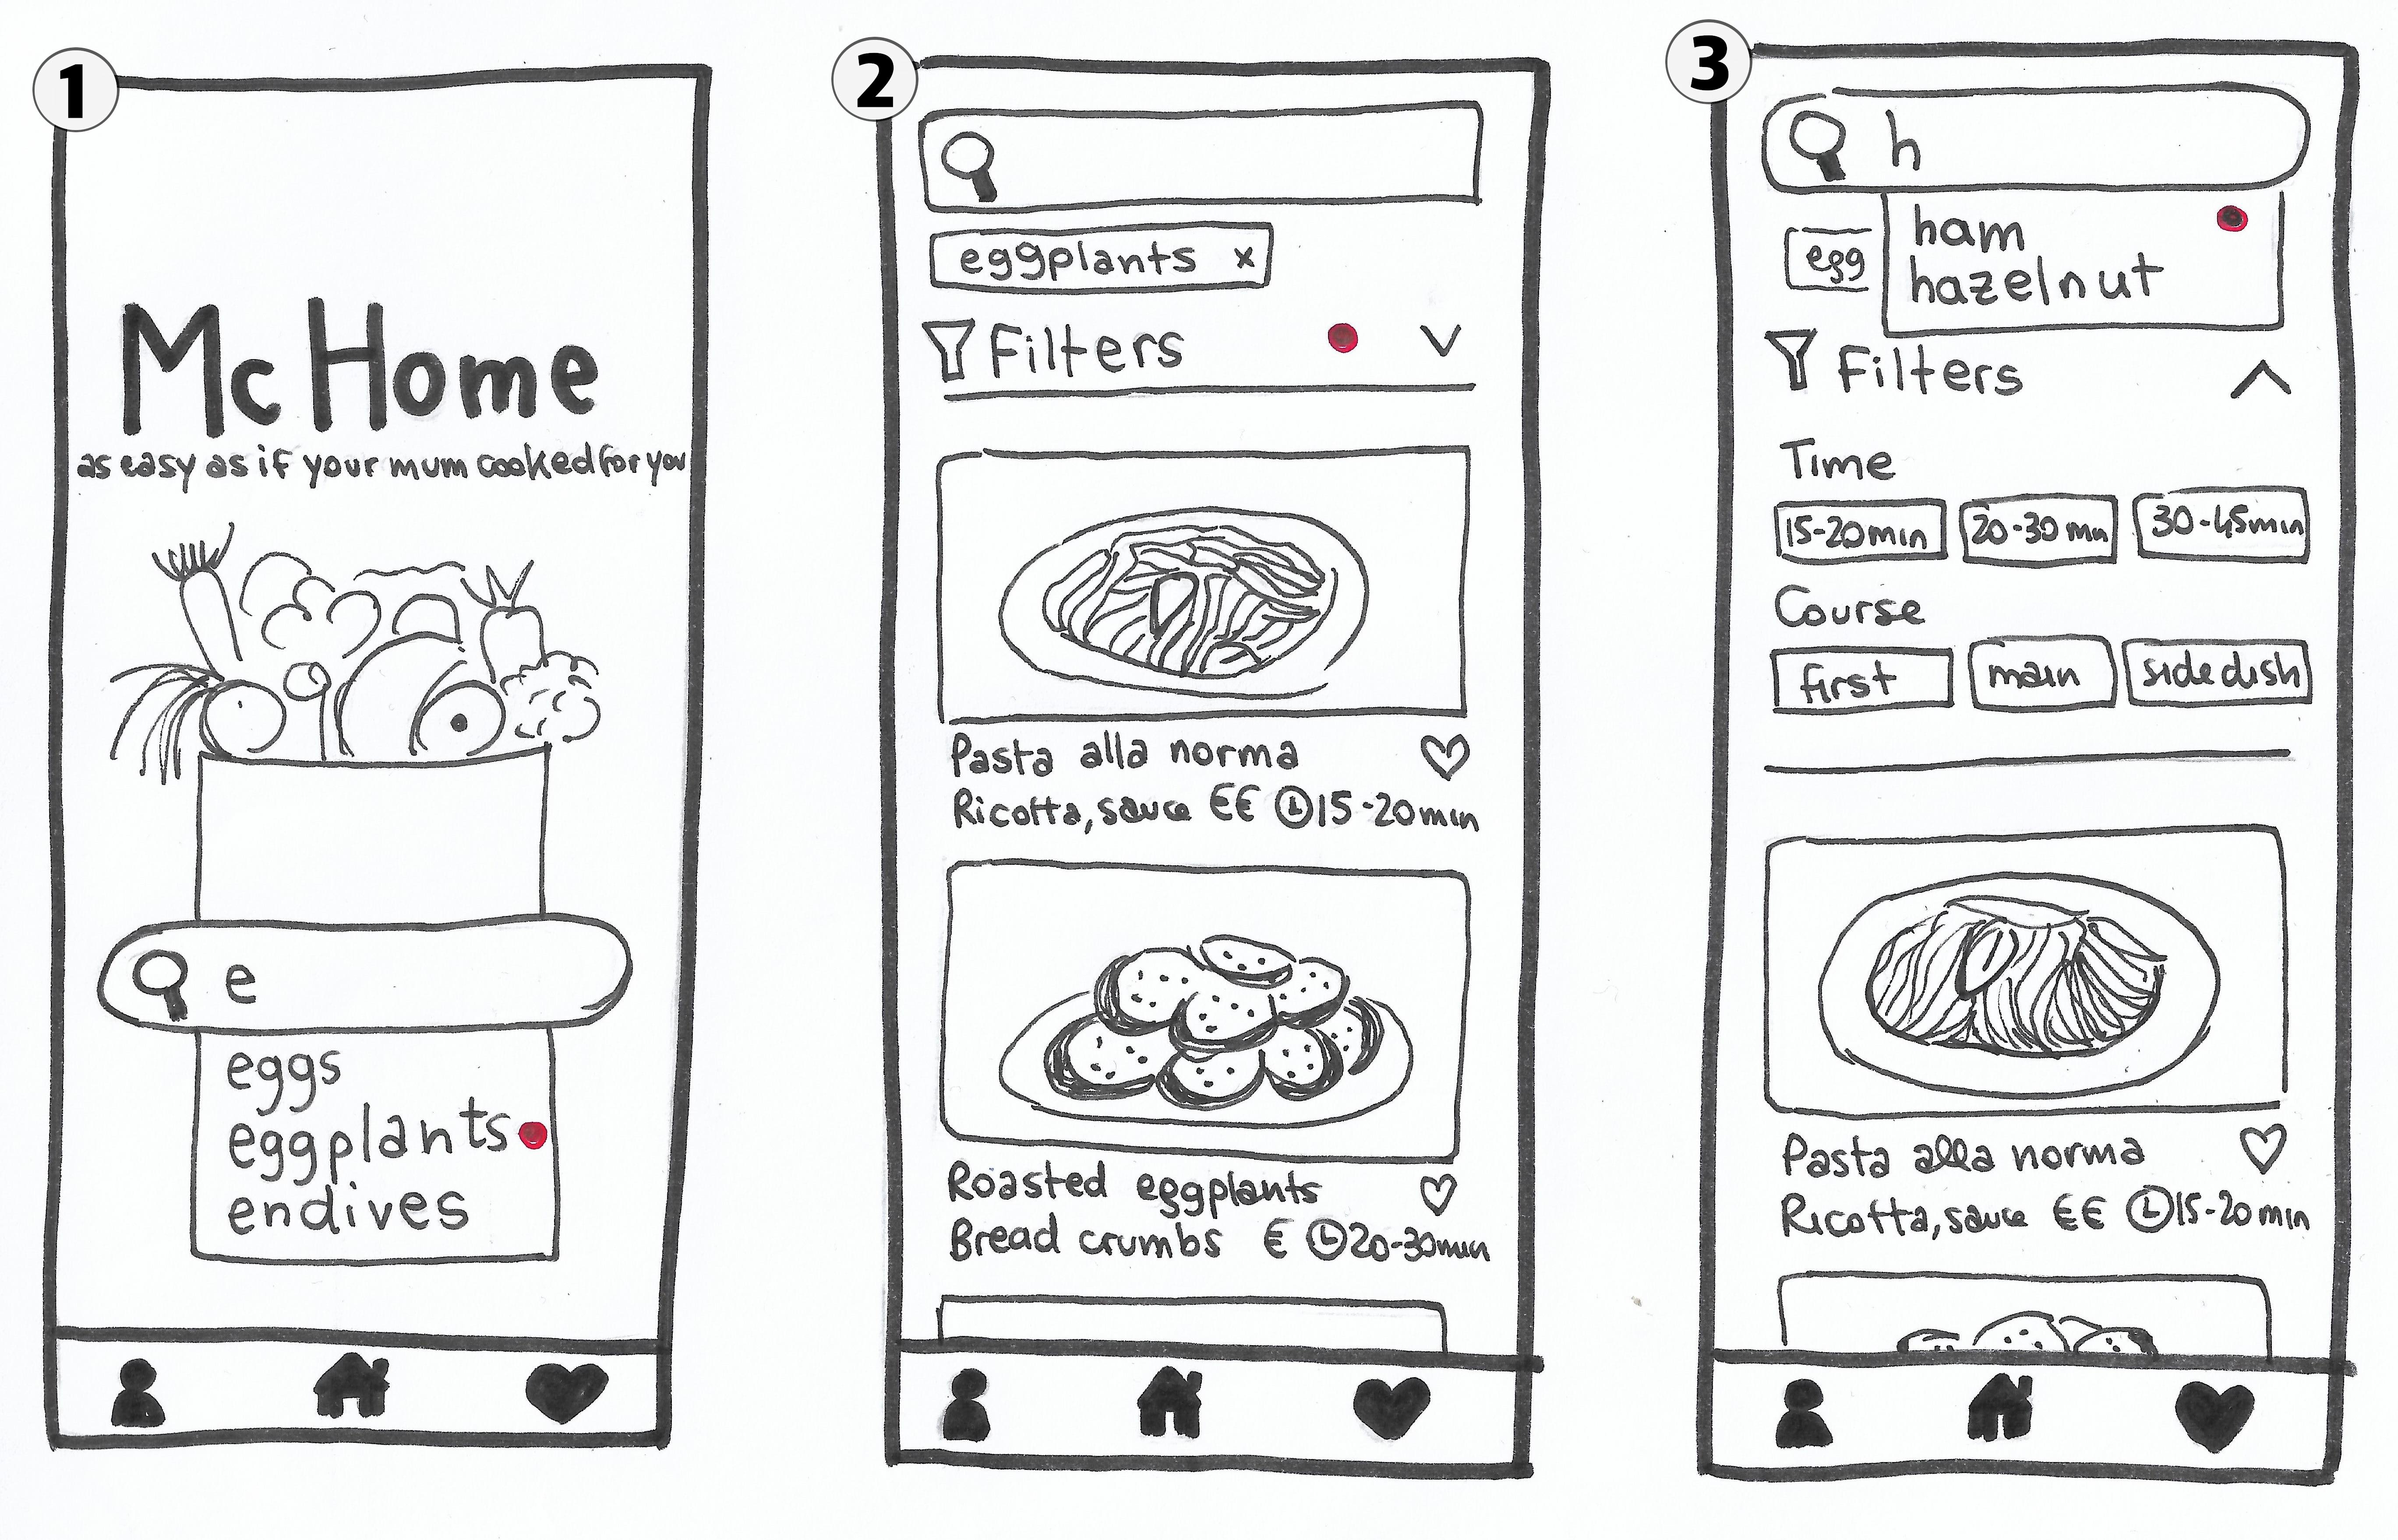 1
Mc Home
as easy as if your mum cooked for you
e
eggs
eggplants
endives
2
eggplants x
Filters
Pasta alla norma
Ricotta, sauce €€ 15-20min
Roasted eggplants
Bread crumbs € 20-30min
3
h
ham
hazelnut
egg
Filters
Time
15-20min 20-30 min 30-45min
Course
first main side dish
Pasta alla norma
Ricotta, sauce €€ 15-20min